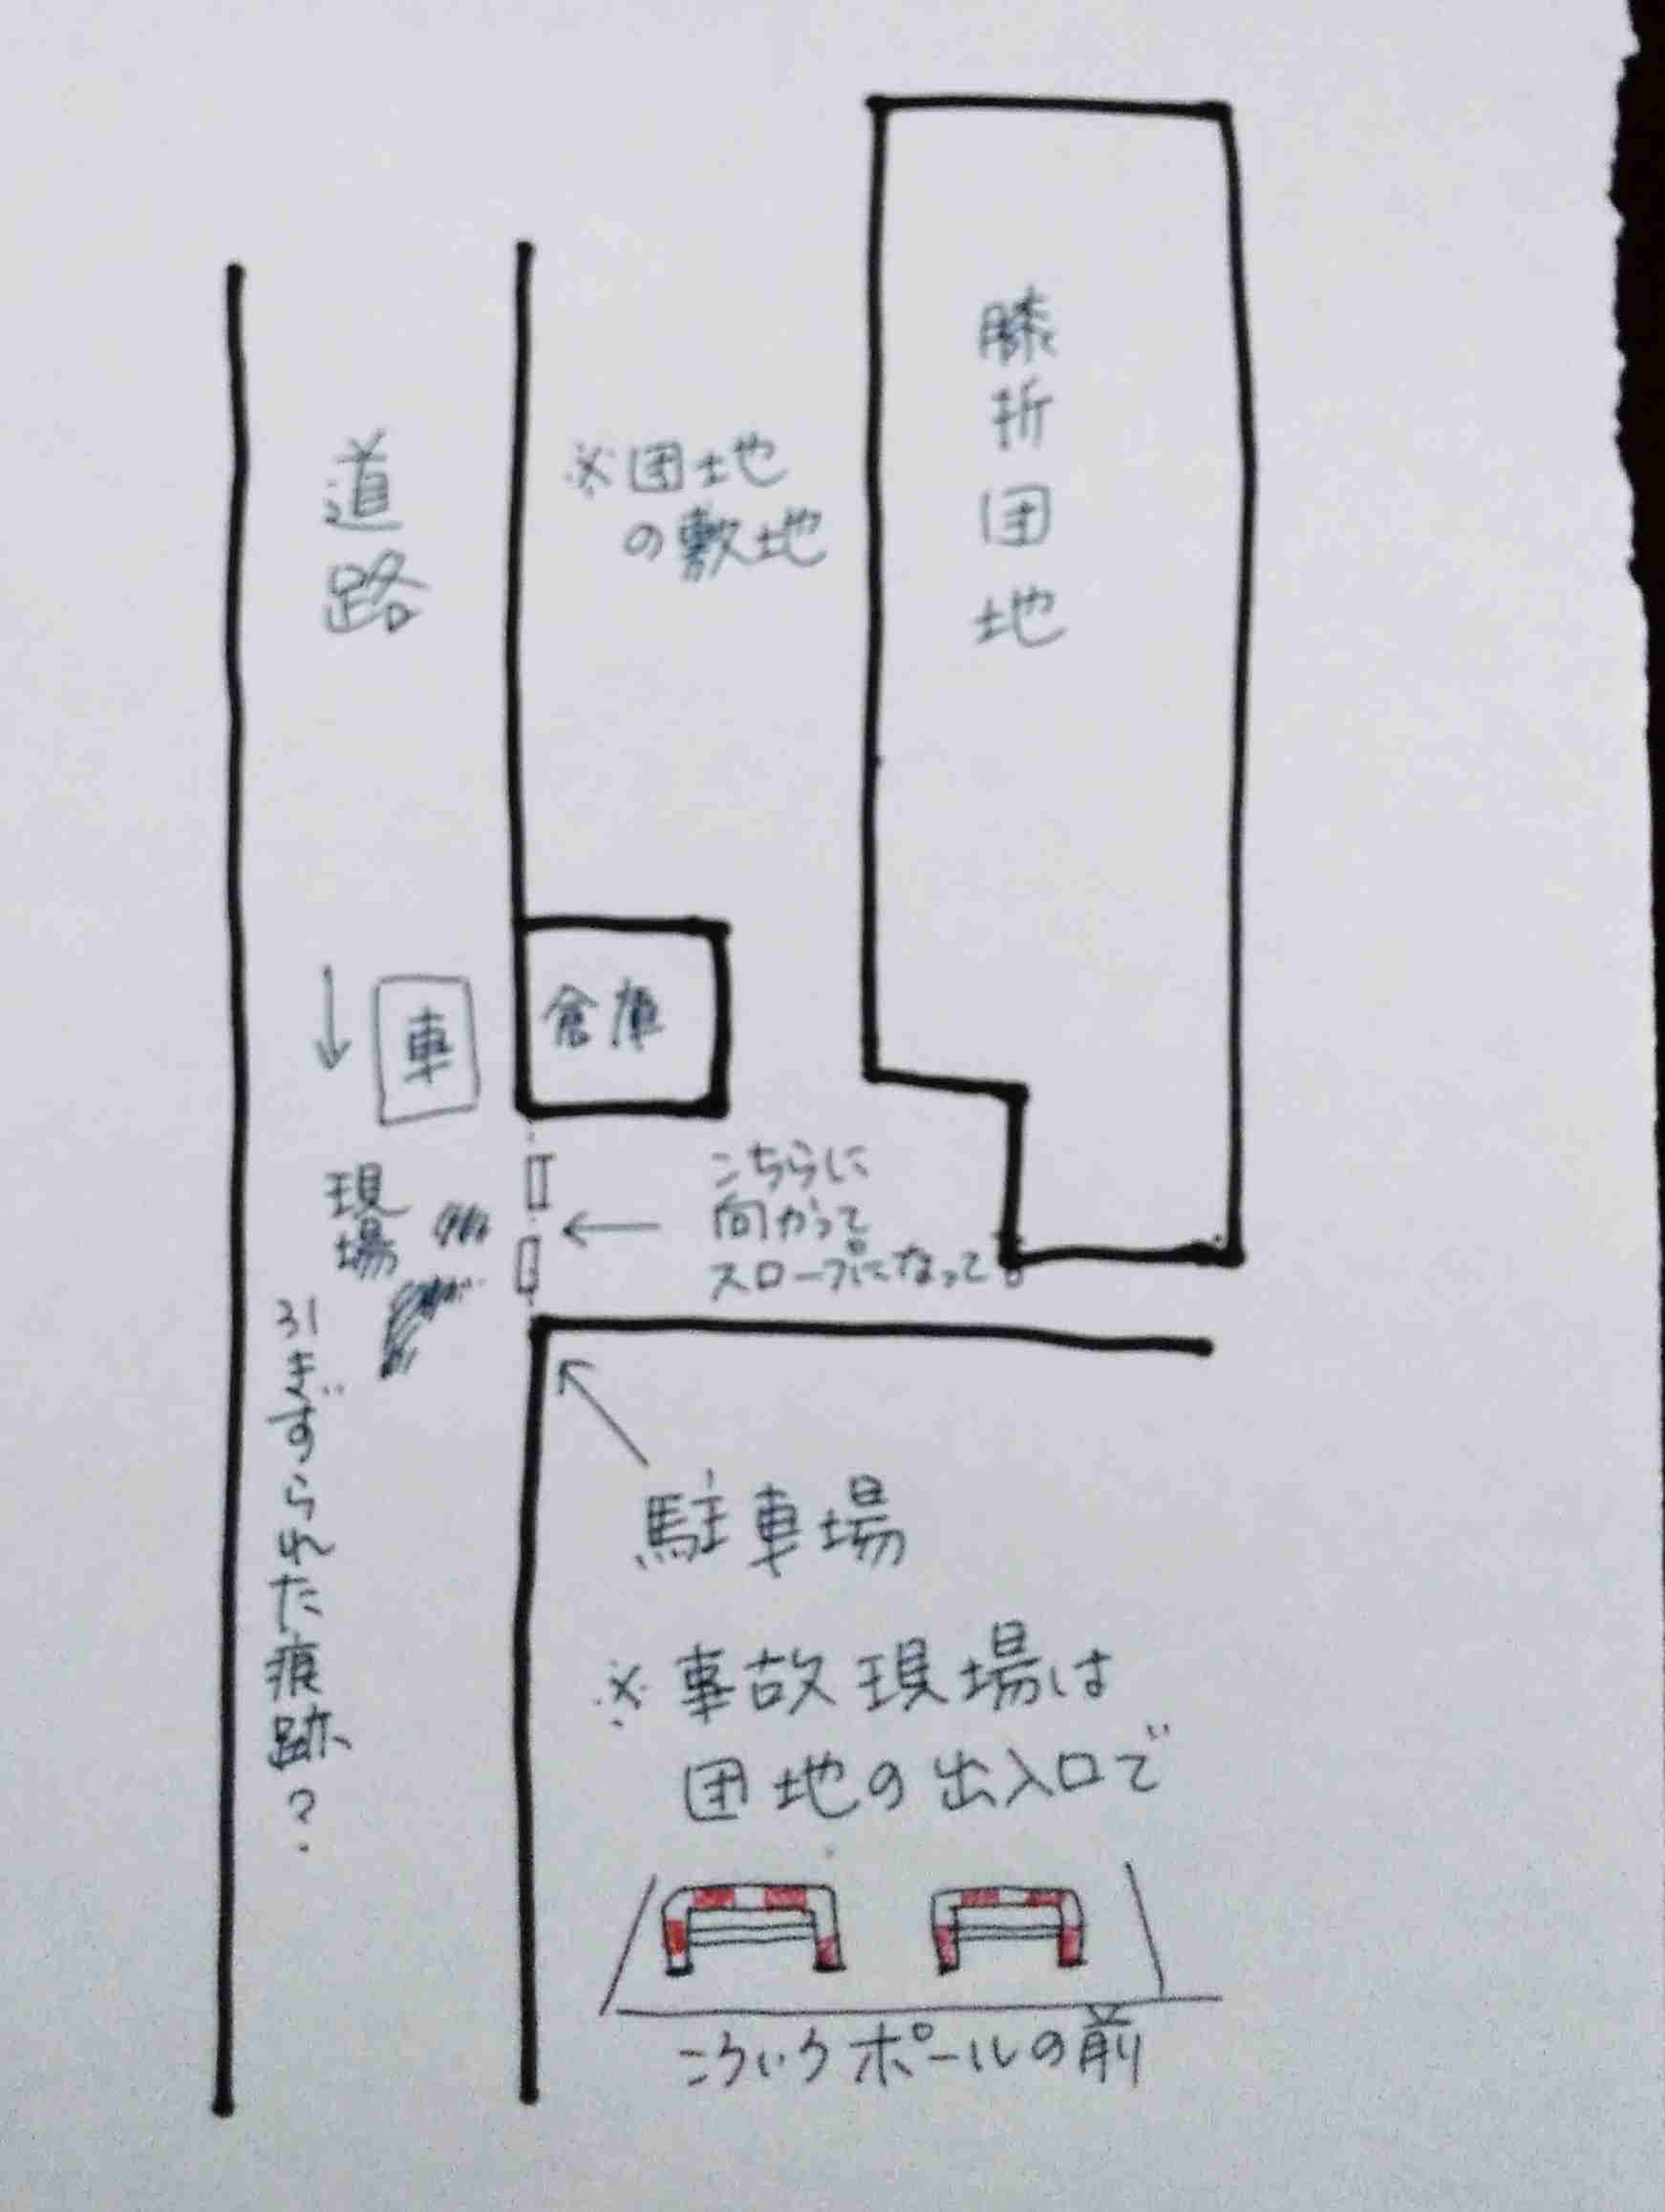 膝折団地
道路
※団地
の敷地
倉庫
車
現場
こちらに
向かって
スロープになってる
引きずられた痕跡?
駐車場
※事故現場は
団地の出入口で
こういうポールの前